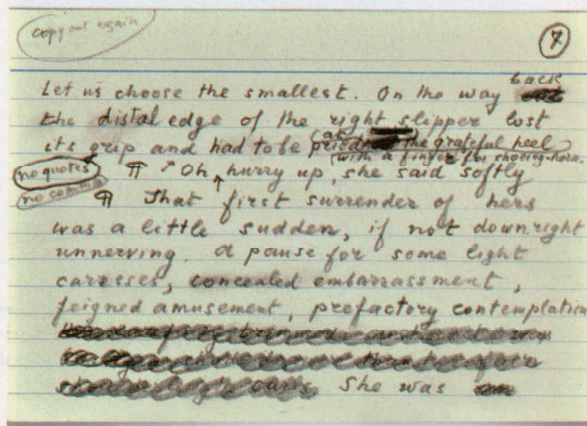 copy out again
7
Let us choose the smallest. On the way back
the distal edge of the right slipper lost
its grip and had to be pried at the grateful heel
with a finger for shoeing-horn.
no quotes
¶ Oh, hurry up, she said softly
no comma
¶ That first surrender of hers
was a little sudden, if not downright
unnerving. A pause for some light
caresses, concealed embarrassment,
feigned amusement, prefactory contemplation
She was